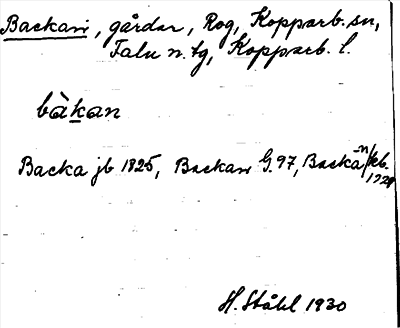 Backan, gårdar, Rog, Kopparb. sn,
Falu n. tg, Kopparb. l.
bàkan
Backa jb 1825, Backan G. 97, Backa-n/kb. 1929
H. Ståhl 1930